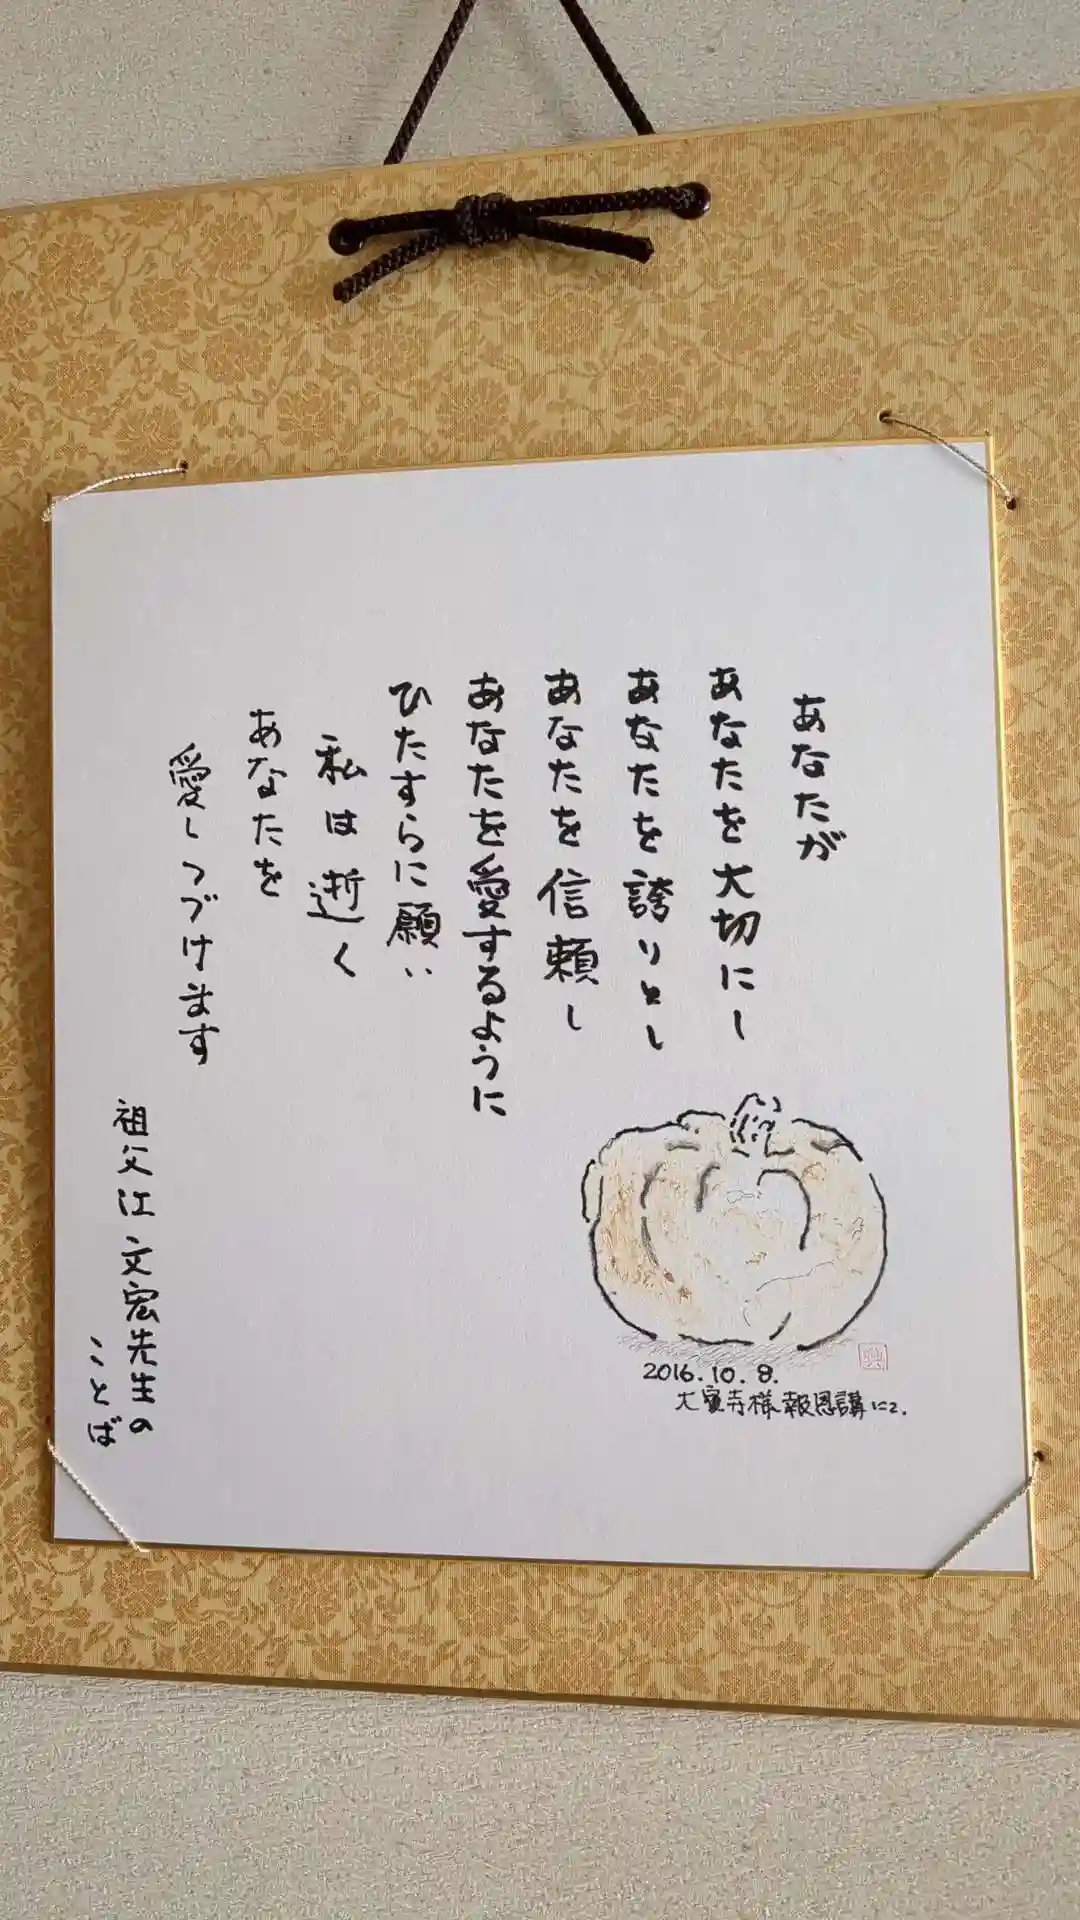 あなたが
あなたを大切にし
あなたを誇りとし
あなたを信頼し
あなたを愛するように
ひたすらに願い
私は逝く
あなたを
愛しつづけます
祖父江文宏先生の
ことば
2016.10.8.
寺様報恩講にて.